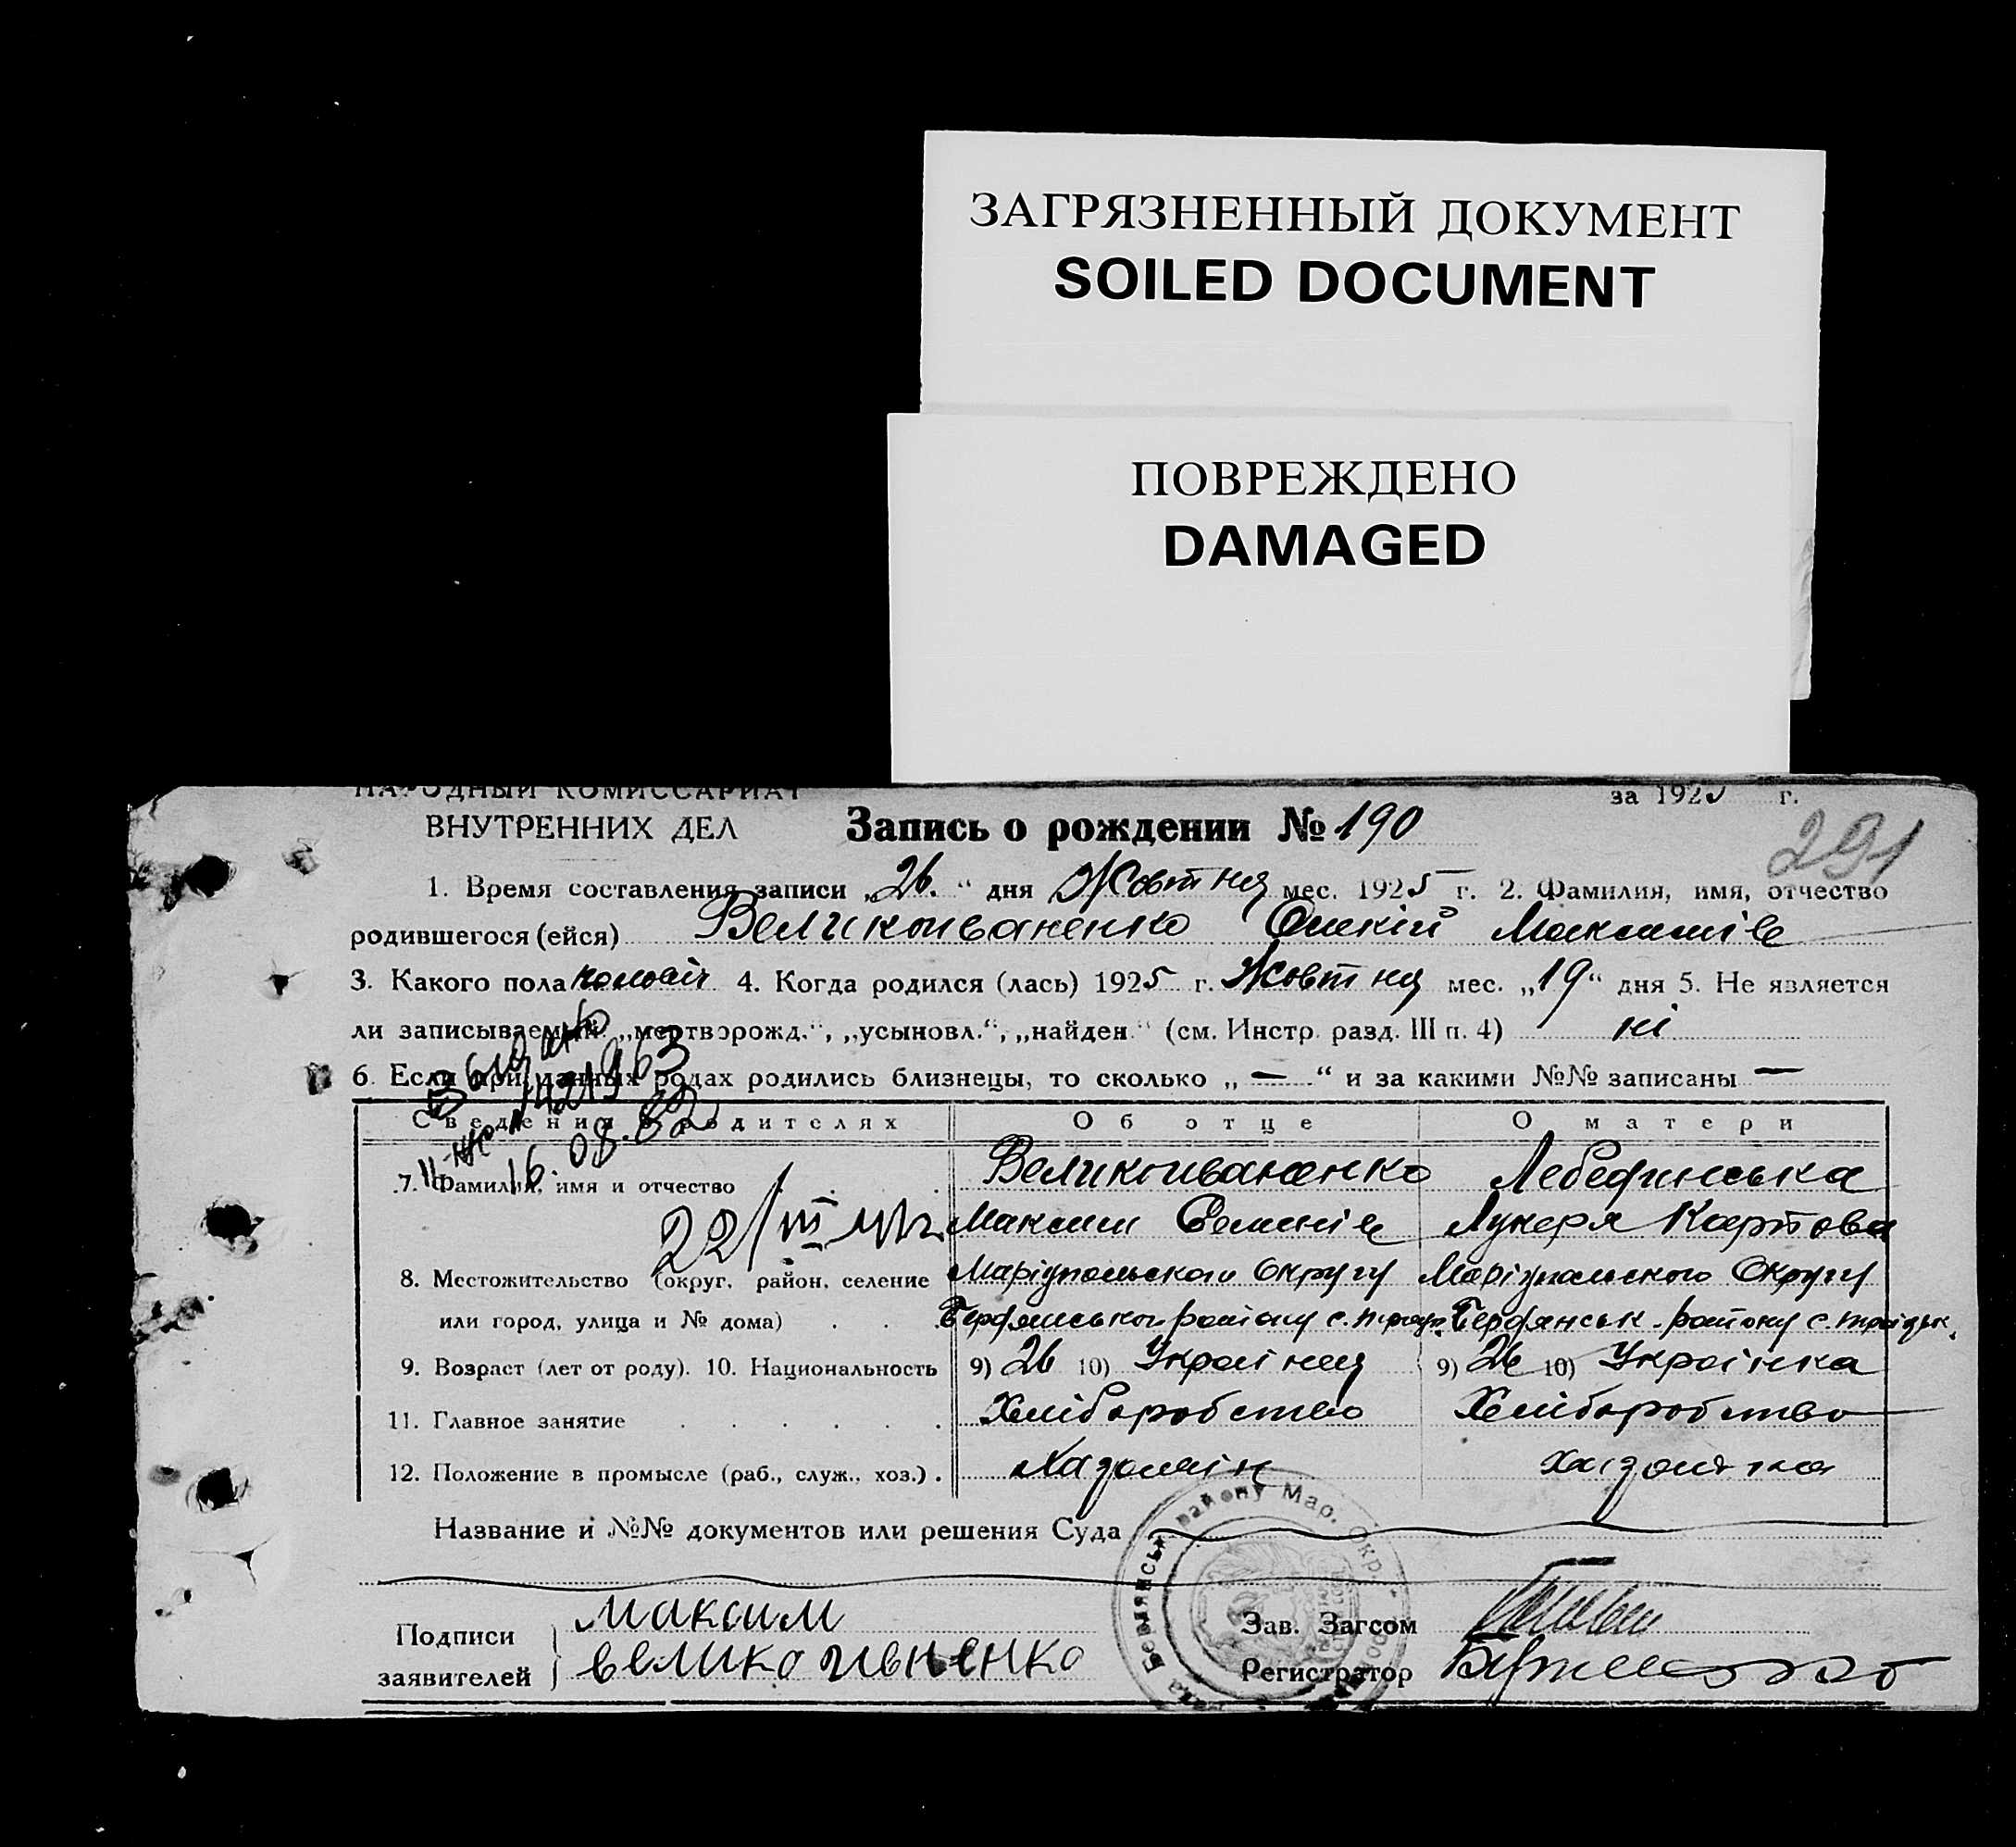 ЗАГРЯЗНЕННЫЙ ДОКУМЕНТ
SOILED DOCUMENT
ПОВРЕЖДЕНО
DAMAGED
НАРОДНЫЙ КОМИССАРИАТ
ВНУТРЕННИХ ДЕЛ
за 1925 г.
Запись о рождении № 190
291
1. Время составления записи „26.“ дня Жовтня мес. 1925 г. 2. Фамилия, имя, отчество
родившегося (ейся) Великоиваненко Максимів
3. Какого пола чоловіч 4. Когда родился (лась) 1925 г. Жовтня мес. „19“ дня 5. Не является
ли записываемый „мертворожд.“, „усыновл.“, „найден.“ (см. Инстр. разд. III п. 4) ні
6. Если при данных родах родились близнецы, то сколько „—“ и за какими №№ записаны —
Сведения о родителях Об отце О матери
7. Фамилия, имя и отчество Великоиваненко Лебединська
Максим Семенів Лукеря Карпова
8. Местожительство (округ, район, селение Маріупольского Округу Маріупольского Округу
или город, улица и № дома) Бердянського району с. Бердянськ. району с. троіцьк.
9. Возраст (лет от роду). 10. Национальность 9) 26 10) Украінец 9) 26 10) Украінка
11. Главное занятие Хліборобство Хліборобство
12. Положение в промысле (раб., служ., хоз.) Хазяїн хазяйка
16.08.82
22/III
Название и №№ документов или решения Суда
району Мар. Окр.
Подписи заявителей
Максим
великоивненко
Зав. Загсом
Регистратор